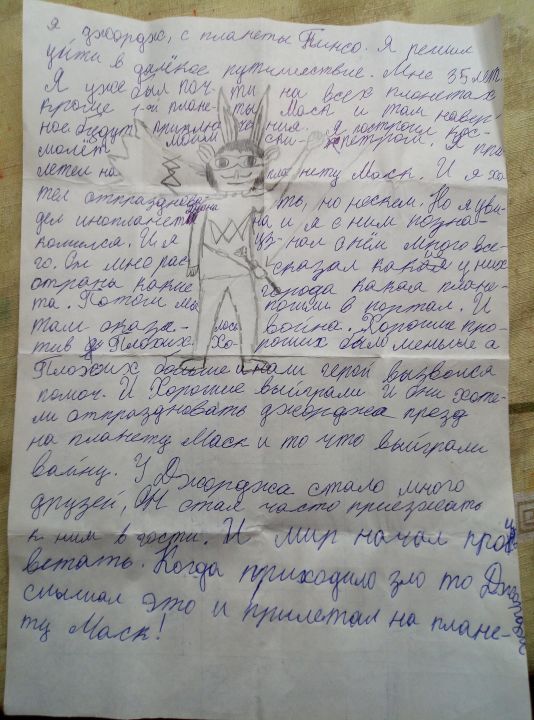 Я джордж, с планеты Пинсо. Я решил
уйти в далёкое путишествие. Мне 35 лет.
Я уже был поч ти на всех планетах
кроще 1-ой плане-ты Маск и там навер-
ное будут приклю че ния. Я построил кос-
молёт с моим с
летел на пла нету Маск. И я хо
тел отпразднов ть, но нескем. Но я уви-
дел инопланет яна на и я с ним позна-
комился. И я уз нал о нём много все-
го. Он мне рас сказал какая у них
страна какие города какая плане-
та. Потом мы пошли в портал. И
там оказа- лось война. Хорошие про-
тив Плохих. Хо- роших было меньше а
Плохих больше и нали герой вызвался
помоч. И Хорошие выйграли. И они хоте-
ли отпраздновать джорджа презд
на планету Маск и то что выиграли
вайну. У Джорджа стало много
друзей, Он стал часто приезжать
к ним в гости. И мир начал проц-
ветать. Когда приходило зло то Джордж
слышал это и прилетал на плане-
ту Маск!